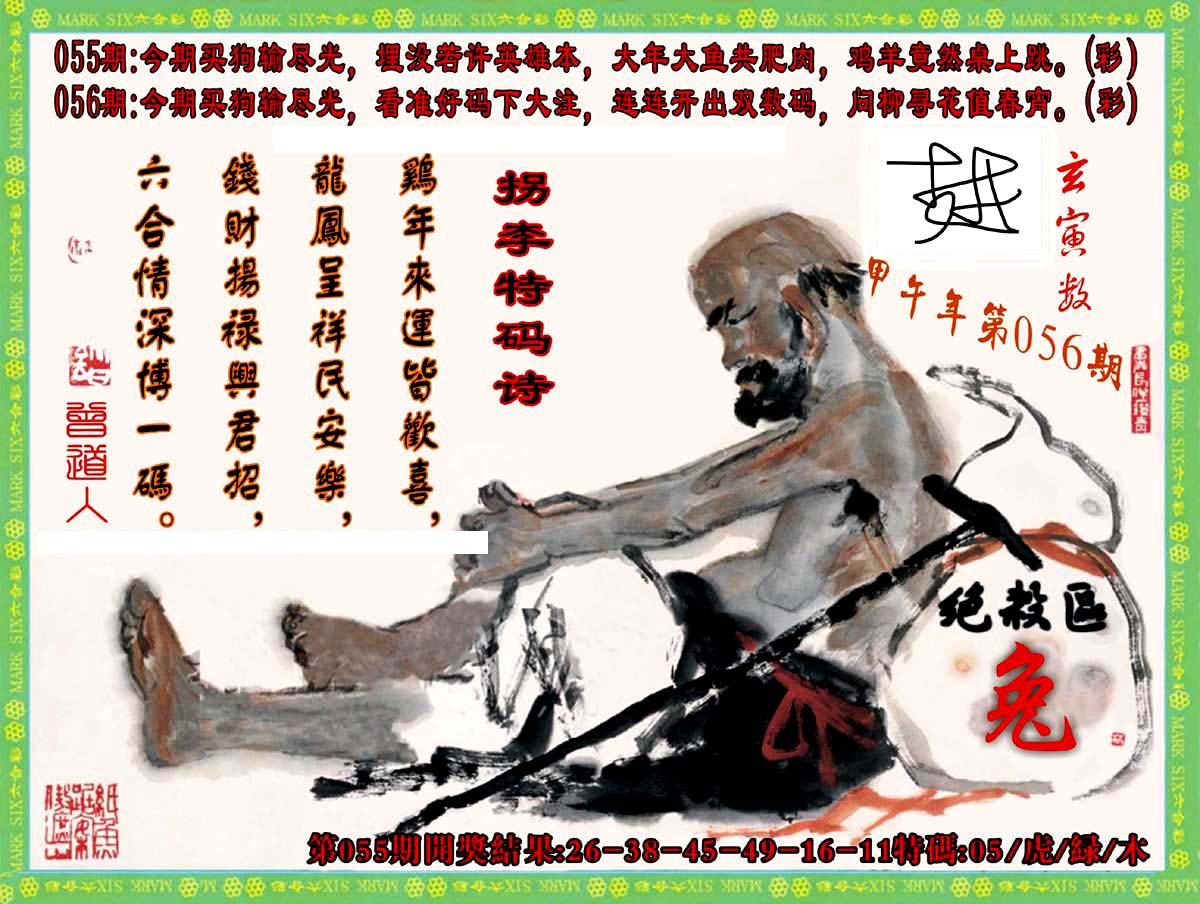 055期:今期买狗输尽光，埋没若许英雄本，大年大鱼共肥肉，鸡羊竟然桌上跳。(彩)
056期:今期买狗输尽光，看准好码下大注，连连开出双数码，问柳寻花值春宵。(彩)
玄寅数
甲午年第056期
拐李特码诗
鷄年來運皆歡喜，
龍鳳呈祥民安樂，
錢財揚禄興君招，
六合情深博一碼。
曾道人
绝殺區
兔
第055期開獎結果:26-38-45-49-16-11特碼:05/虎/緑/木
MARK SIX六合彩